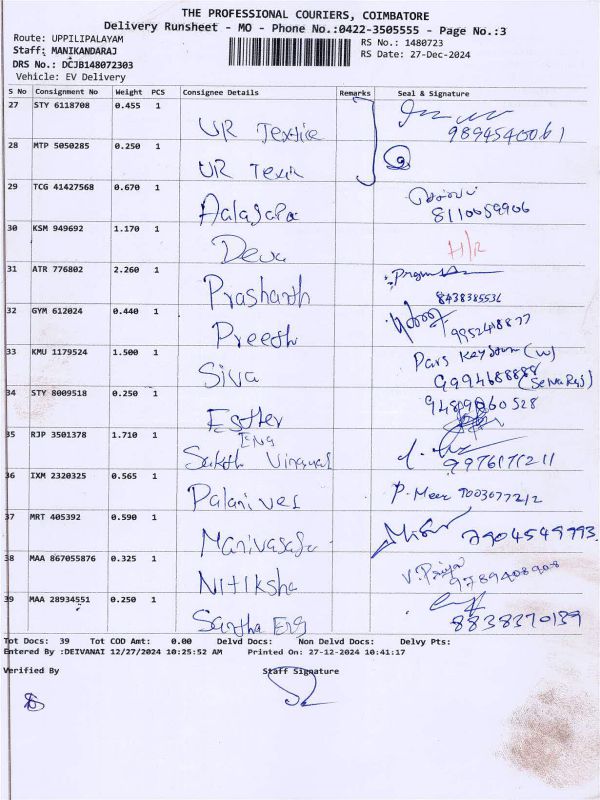 THE PROFESSIONAL COURIERS, COIMBATORE
Delivery Runsheet - MO - Phone No.:0422-3505555 - Page No.:3
Route: UPPILIPALAYAM
RS No.: 1480723
Staff: MANIKANDARAJ
RS Date: 27-Dec-2024
DRS No.: DCJB148072303
Vehicle: EV Delivery
S No Consignment No Weight PCS Consignee Details Remarks Seal & Signature
27 STY 6118708 0.455 1
UR Textile 9894540061
28 MTP 5050285 0.250 1
UR
29 TCG 41427568 0.670 1
8110059906
30 KSM 949692 1.170 1
Deva H/R
31 ATR 776802 2.260 1
Prashanth 8438385536
32 GYM 612024 0.440 1
Preeth 9952418877
33 KMU 1179524 1.500 1
Siva (W)
9994688888 (Selva Raj)
34 STY 8009518 0.250 1
Esther
35 RJP 3501378 1.710 1
Eng
9976171211
36 IXM 2320325 0.565 1
Palanivel P. Meer 7003077212
37 MRT 405392 0.590 1
7904549993
38 MAA 867055876 0.325 1
Nitiksha V. Priya 9789408908
39 MAA 28934551 0.250 1
Santha Eng 8838370139
Tot Docs: 39 Tot COD Amt: 0.00 Delvd Docs: Non Delvd Docs: Delvy Pts:
Entered By :DEIVANAI 12/27/2024 10:25:52 AM Printed On: 27-12-2024 10:41:17
Verified By Staff Signature